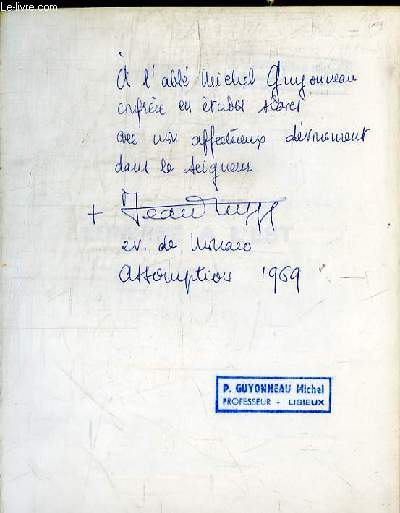 Le-livre.com
A l'abbé Michel Guyonneau
confrère en études
avec mon affectueux dévouement
dans le Seigneur
+ Jean Rupp
ev. de Monaco
Assomption 1969
P. GUYONNEAU Michel
PROFESSEUR - LISIEUX